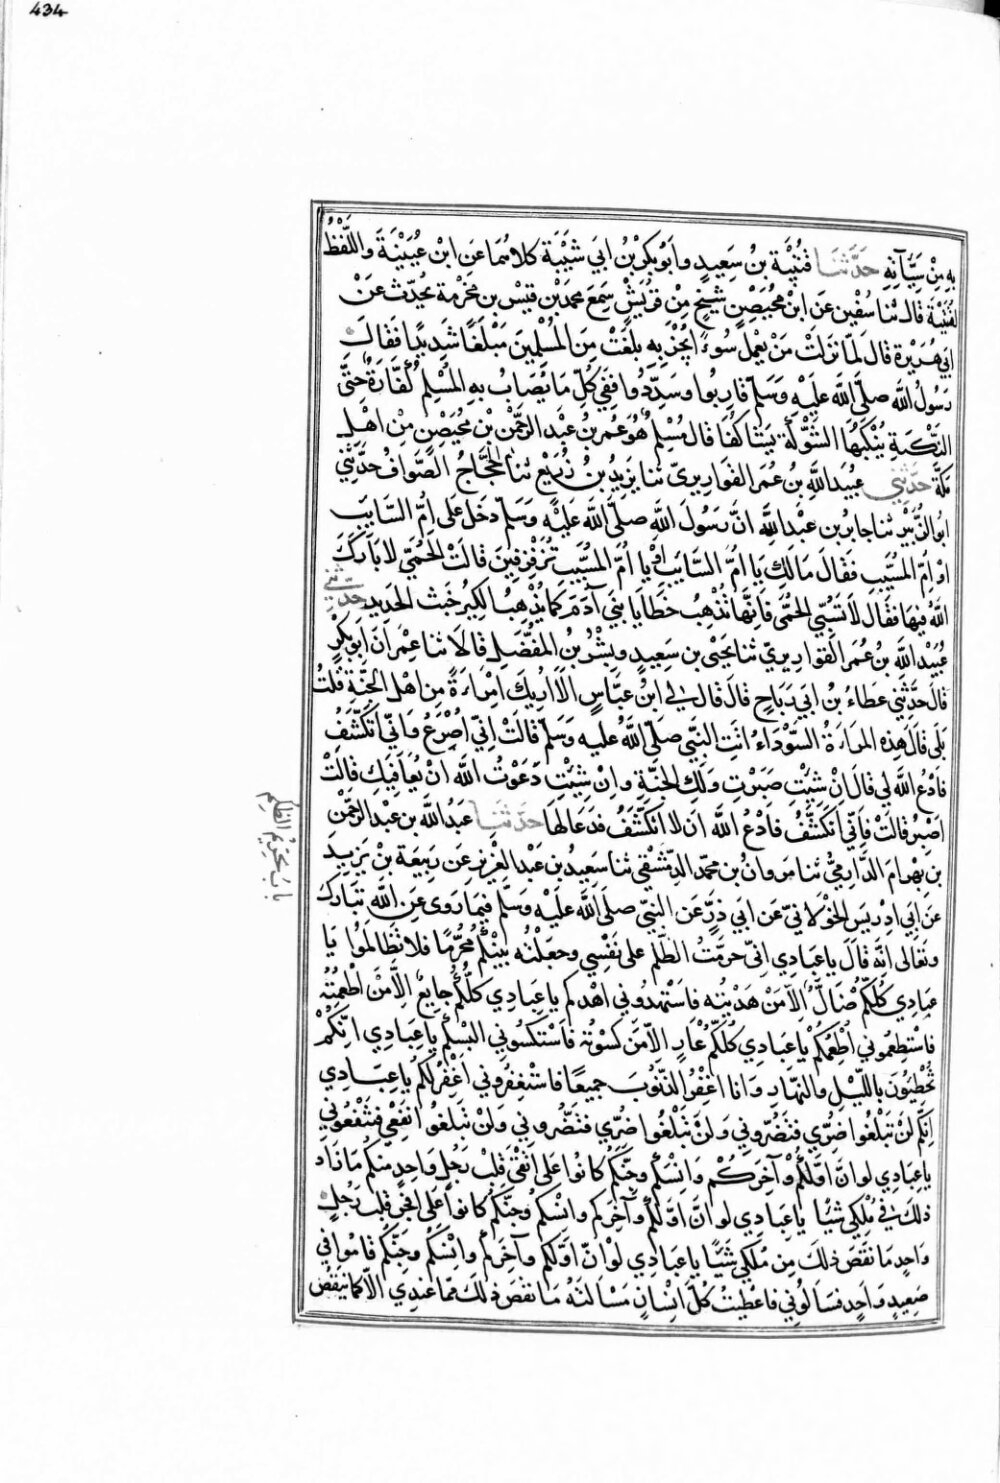 434
به من سيآته حدثنا قتيبة بن سعيد وابو بكر بن ابي شيبة كلاهما عن ابن عيينة واللفظ
لقتيبة قال ثنا سفين عن ابن محيصن شيخ من قريش سمع محمد بن قيس بن مخرمة يحدث عن
ابي هريرة قال لما نزلت من يعمل سوءا يجز به بلغت من المسلمين مبلغا شديدا فقال
رسول الله صلى الله عليه وسلم قاربوا وسددوا ففي كل ما يصاب به المسلم كفارة حتى
النكبة ينكبها الشوكة يشاكها قال مسلم هو عمر بن عبد الرحمن بن محيصن من اهل
مكة حدثني عبيد الله بن عمر القواريرى ثنا يزيد بن زريع ثنا الحجاج الصواف حدثني
ابو الزبير ثنا جابر بن عبد الله ان رسول الله صلى الله عليه وسلم دخل على ام السايب
او ام المسيب فقال مالك يا ام السايب او يا ام المسيب تزفزفين قالت الحمى لا بارك
الله فيها فقال لا تسبي الحمى فانها تذهب خطايا بني آدم كما يذهب الكير خبث الحديد حدثني
عبيد الله بن عمر القواريري ثنا يحيى بن سعيد وبشر بن المفضل قالا ثنا عمران ابو بكر
قال حدثني عطاء بن ابي رباح قال قال لي ابن عباس الا اريك امراءة من اهل الجنة قلت
بلى قال هذه المراءة السوداء اتت النبي صلى الله عليه وسلم قالت اني اصرع واني اتكشف
فادع الله لي قال ان شيت صبرت ولك الجنة وان شيت دعوت الله ان يعافيك قالت
اصبر قالت فاني اتكشف فادع الله ان لا اتكشف فدعا لها حدثنا عبد الله بن عبد الرحمن
بن بهرام الدارمي ثنا مروان بن محمد الدمشقي ثنا سعيد بن عبد العزيز عن ربيعة بن يزيد
عن ابي ادريس الخولاني عن ابي ذر عن النبي صلى الله عليه وسلم فيما روى عن الله تبارك
وتعالى انه قال يا عبادي اني حرمت الظلم على نفسي وجعلته بينكم محرما فلا تظالموا يا
عبادي كلكم ضال الا من هديته فاستهدوني اهدكم يا عبادي كلكم جايع الا من اطعمته
فاستطعموني اطعمكم يا عبادي كلكم عار الا من كسوته فاستكسوني اكسكم يا عبادي انكم
تخطيون بالليل والنهار وانا اغفر الذنوب جميعا فاستغفروني اغفر لكم يا عبادي
انكم لن تبلغوا ضري فتضروني ولن تبلغوا ضري فتضروني ولن تبلغوا نفعي فتنفعوني
يا عبادي لو ان اولكم وآخركم وانسكم وجنكم كانوا على اتقى قلب رجل واحد منكم ما زاد
ذلك في ملكي شيا يا عبادي لو ان اولكم وآخركم وانسكم وجنكم كانوا على افجر قلب رجل
واحد ما نقص ذلك من ملكي شيا يا عبادي لو ان اولكم وآخركم وانسكم وجنكم قاموا في
صعيد واحد فسالوني فاعطيت كل انسان مسالته ما نقص ذلك مما عندي الا كما ينقص
باب تحريم الظلم